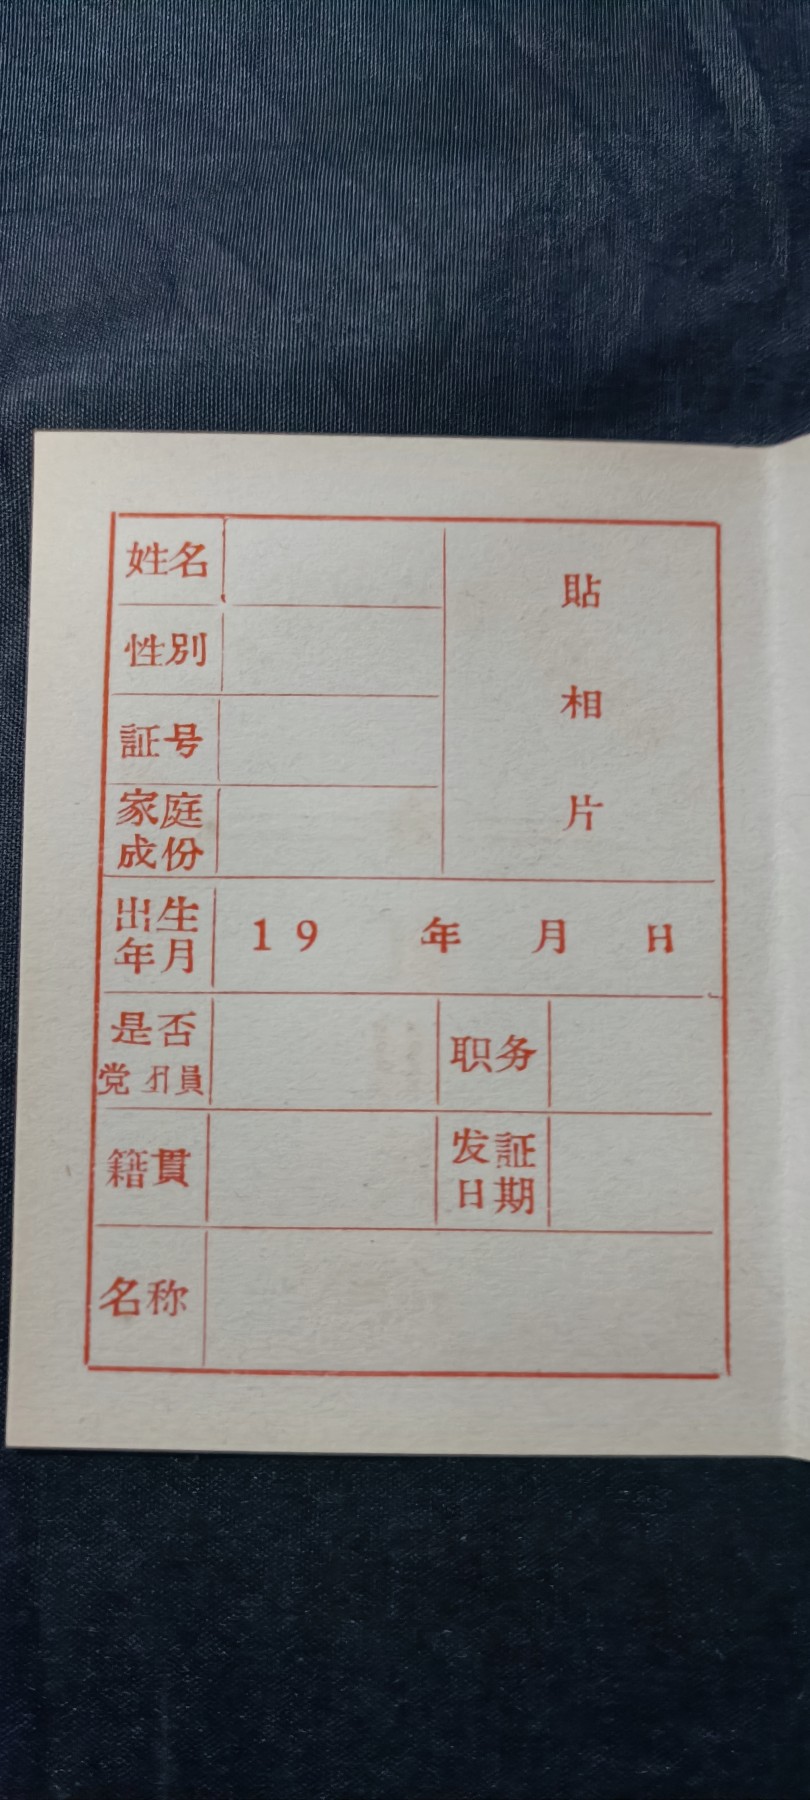 姓名
貼
相
片
性別
証号
家庭
成份
出生
年月
19 年 月 日
是否
党 員
职务
籍貫
发証
日期
名称